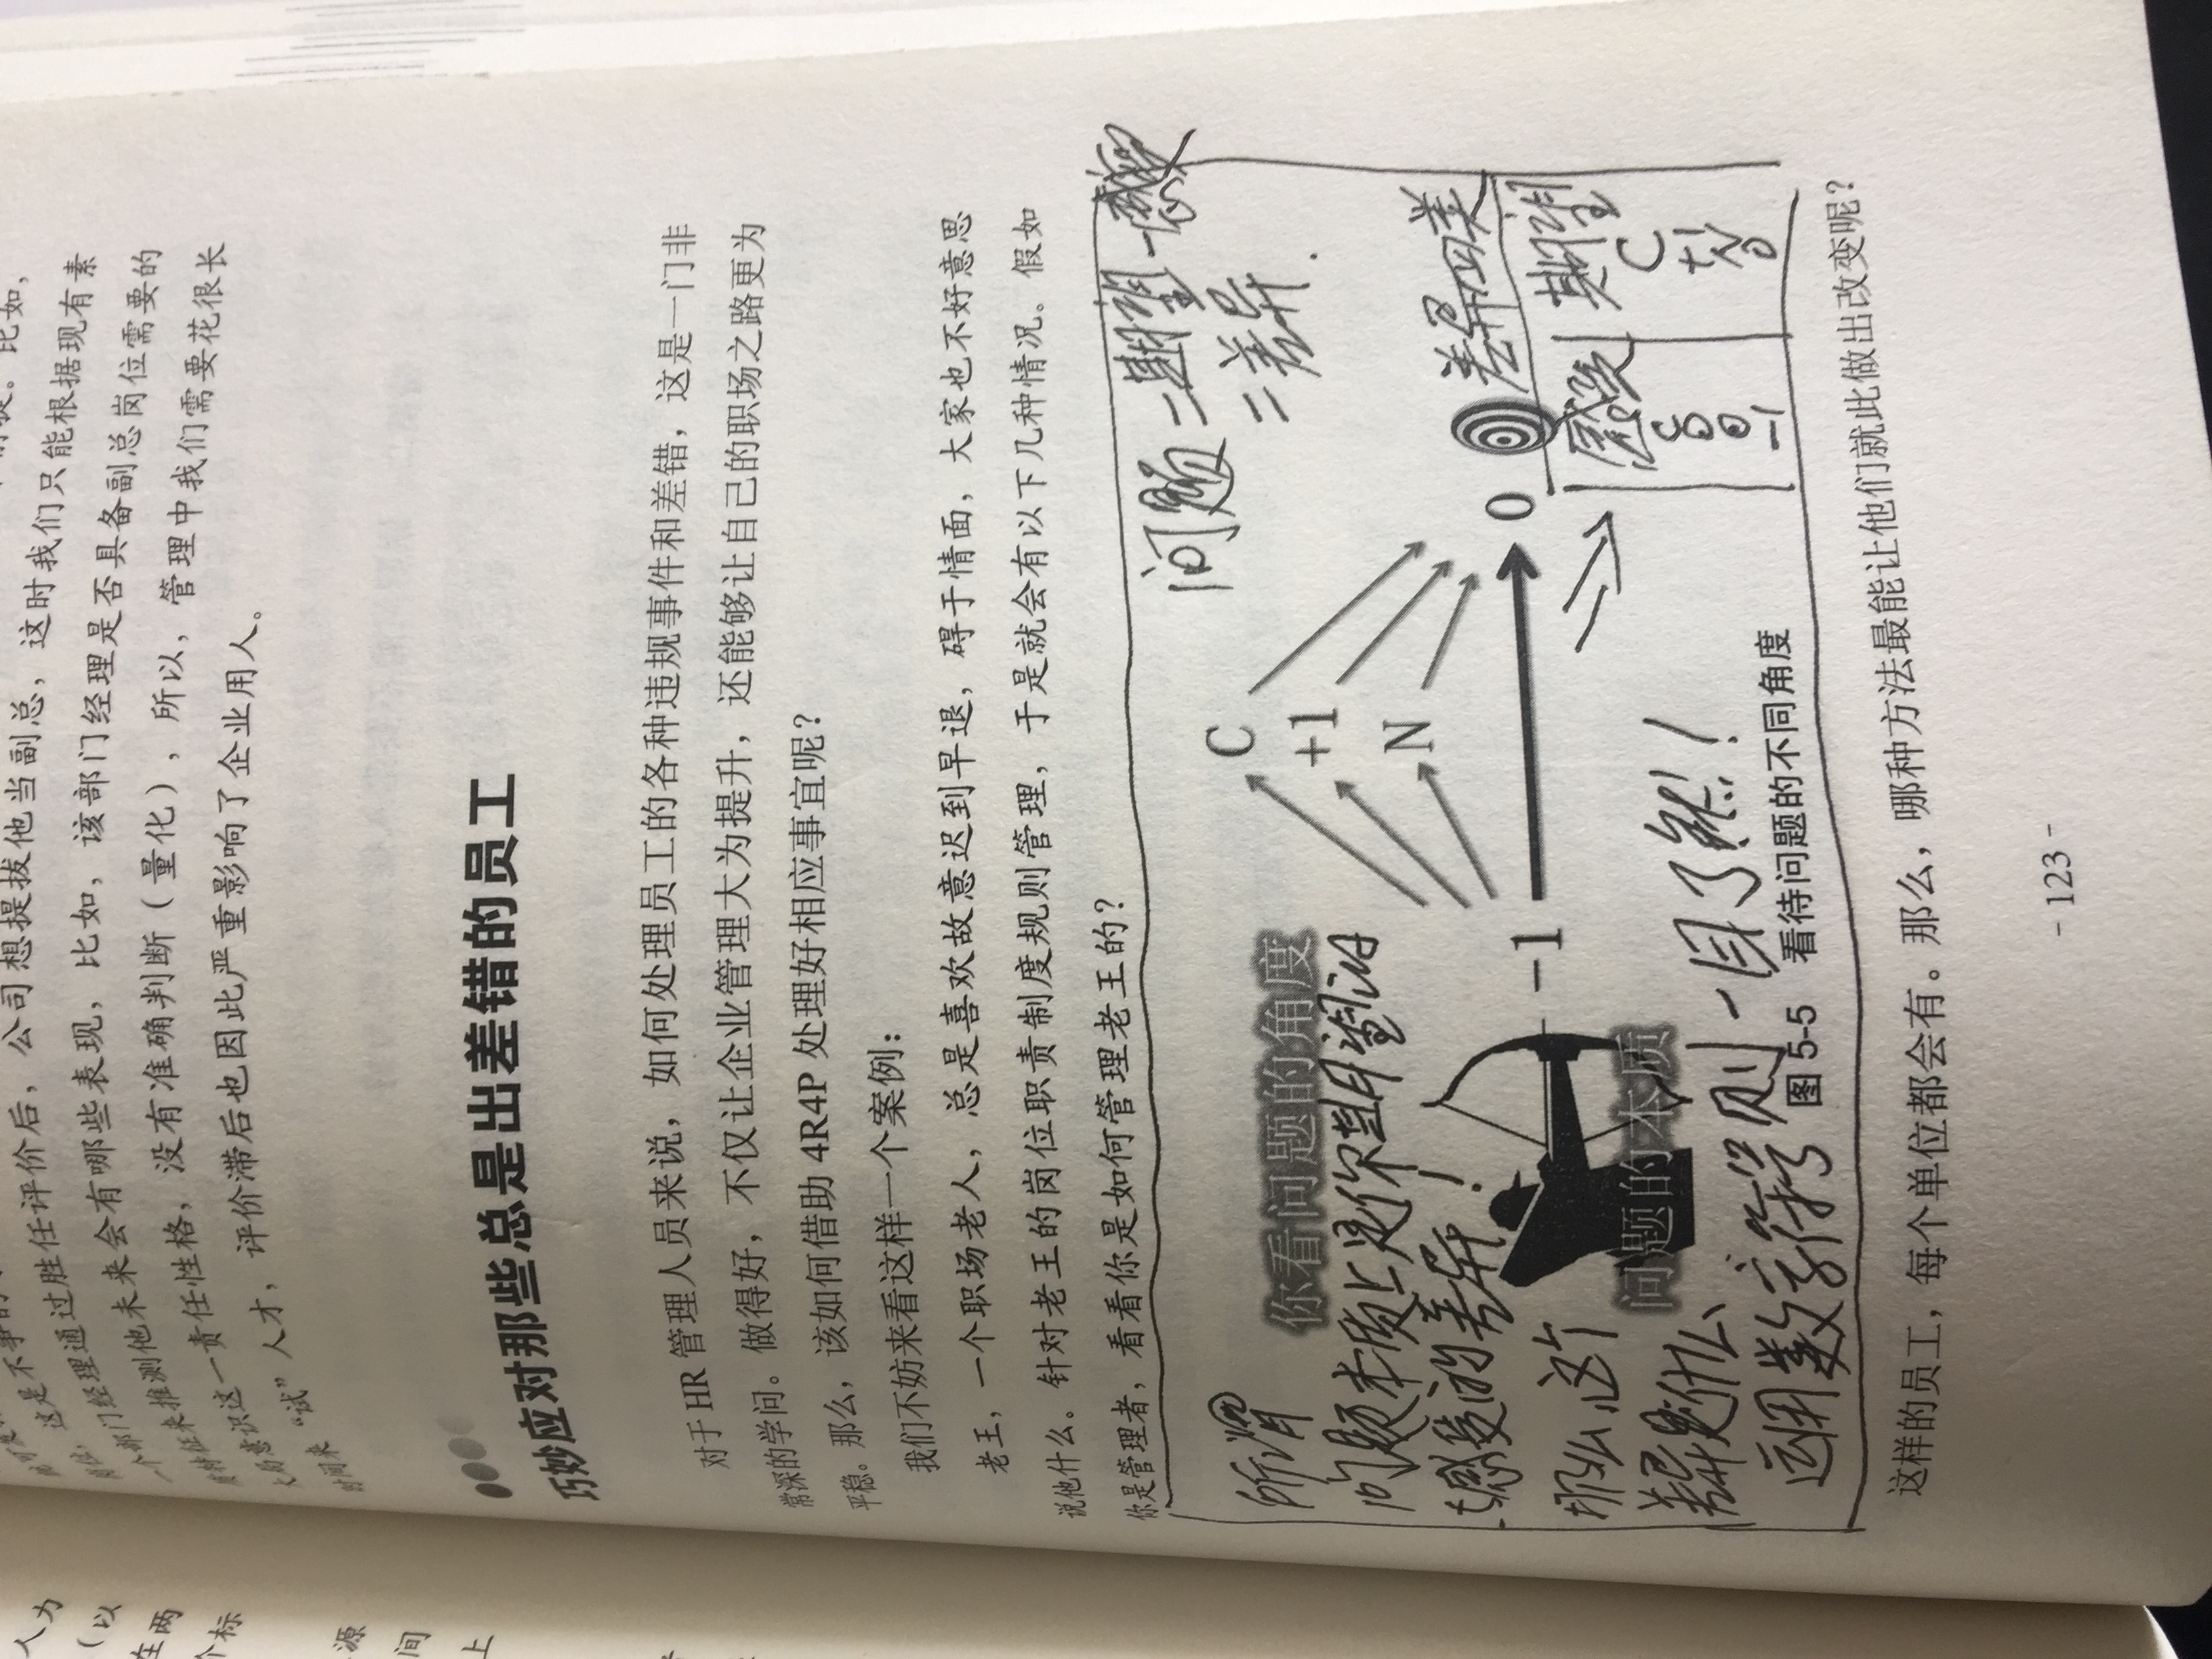 评价后，公司想提拔他当副总，这时我们只能根据现有素
经理通过胜任
有哪些表现，比如，该部门经理是否具备副总岗位需要的
个部门
来推测他未来会
责任性格，没有准确判断（量化），所以，管理中我们需要花很长
意识这一
时间来“试”人才，评价滞后也因此严重影响了企业用人。
巧妙应对那些总是出差错的员工
对于HR管理人员来说，如何处理员工的各种违规事件和差错，这是一门非
常深的学问。做得好，不仅让企业管理大为提升，还能够让自己的职场之路更为
平稳。那么，该如何借助4R4P处理好相应事宜呢？
我们不妨来看这样一个案例：
老王，一个职场老人，总是喜欢故意迟到早退，碍于情面，大家也不好意思
说他什么。针对老王的岗位职责制度规则管理，于是就会有以下几种情况。假如
你是管理者，看看你是如何管理老王的？
问题=期望-感受
=差异.
你看问题的角度
所谓的
问题本质上是你期望和
感受的差异！
那么这个
差异是什么
运用数字符号则一目了然！！
C
+1
N
-1
0
问题的本质
差异四类
感受
期望
C
S
+1
0
N
-1
0
图5-5 看待问题的不同角度
这样的员工，每个单位都会有。那么，哪种方法最能让他们就此做出改变呢？
- 123 -
人为
（以
在两
个标
源
间
上